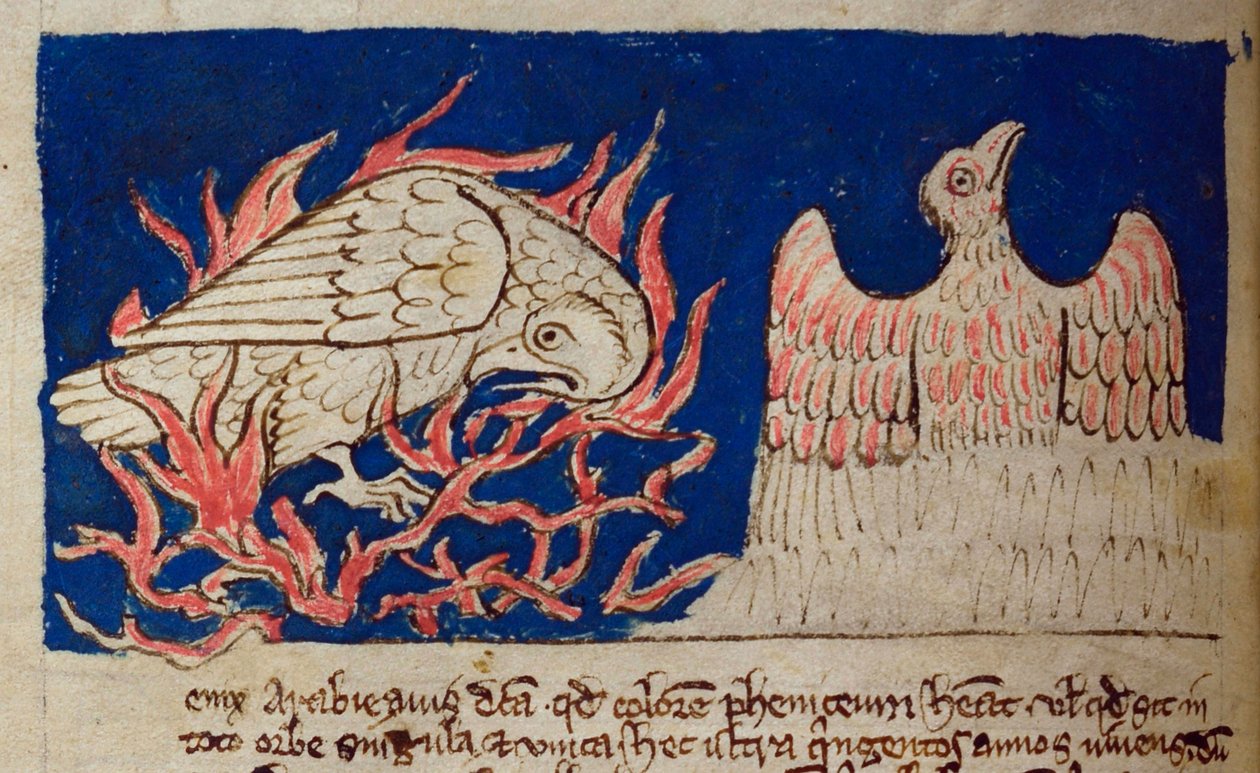 enix Arabie auis dc̄a · qđ colorē pheniceum heat̄ · ul̄ qđ sit in
toto orbe singula · et unica · hec ultra q̄ngentos annos uiuens · dū